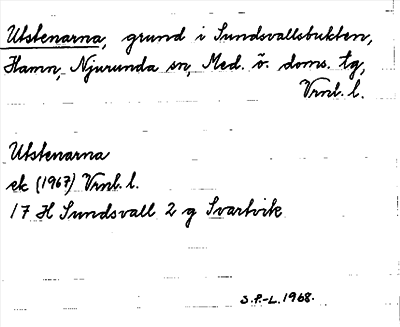 Utstenarna, grund i Sundsvallsbukten,
Hamn, Njurunda sn, Med. ö. doms. tg,
Vrnl. l.
Utstenarna
ek (1967) Vrnl. l.
17 H Sundsvall 2 g Svartvik
S.P.-L. 1968.